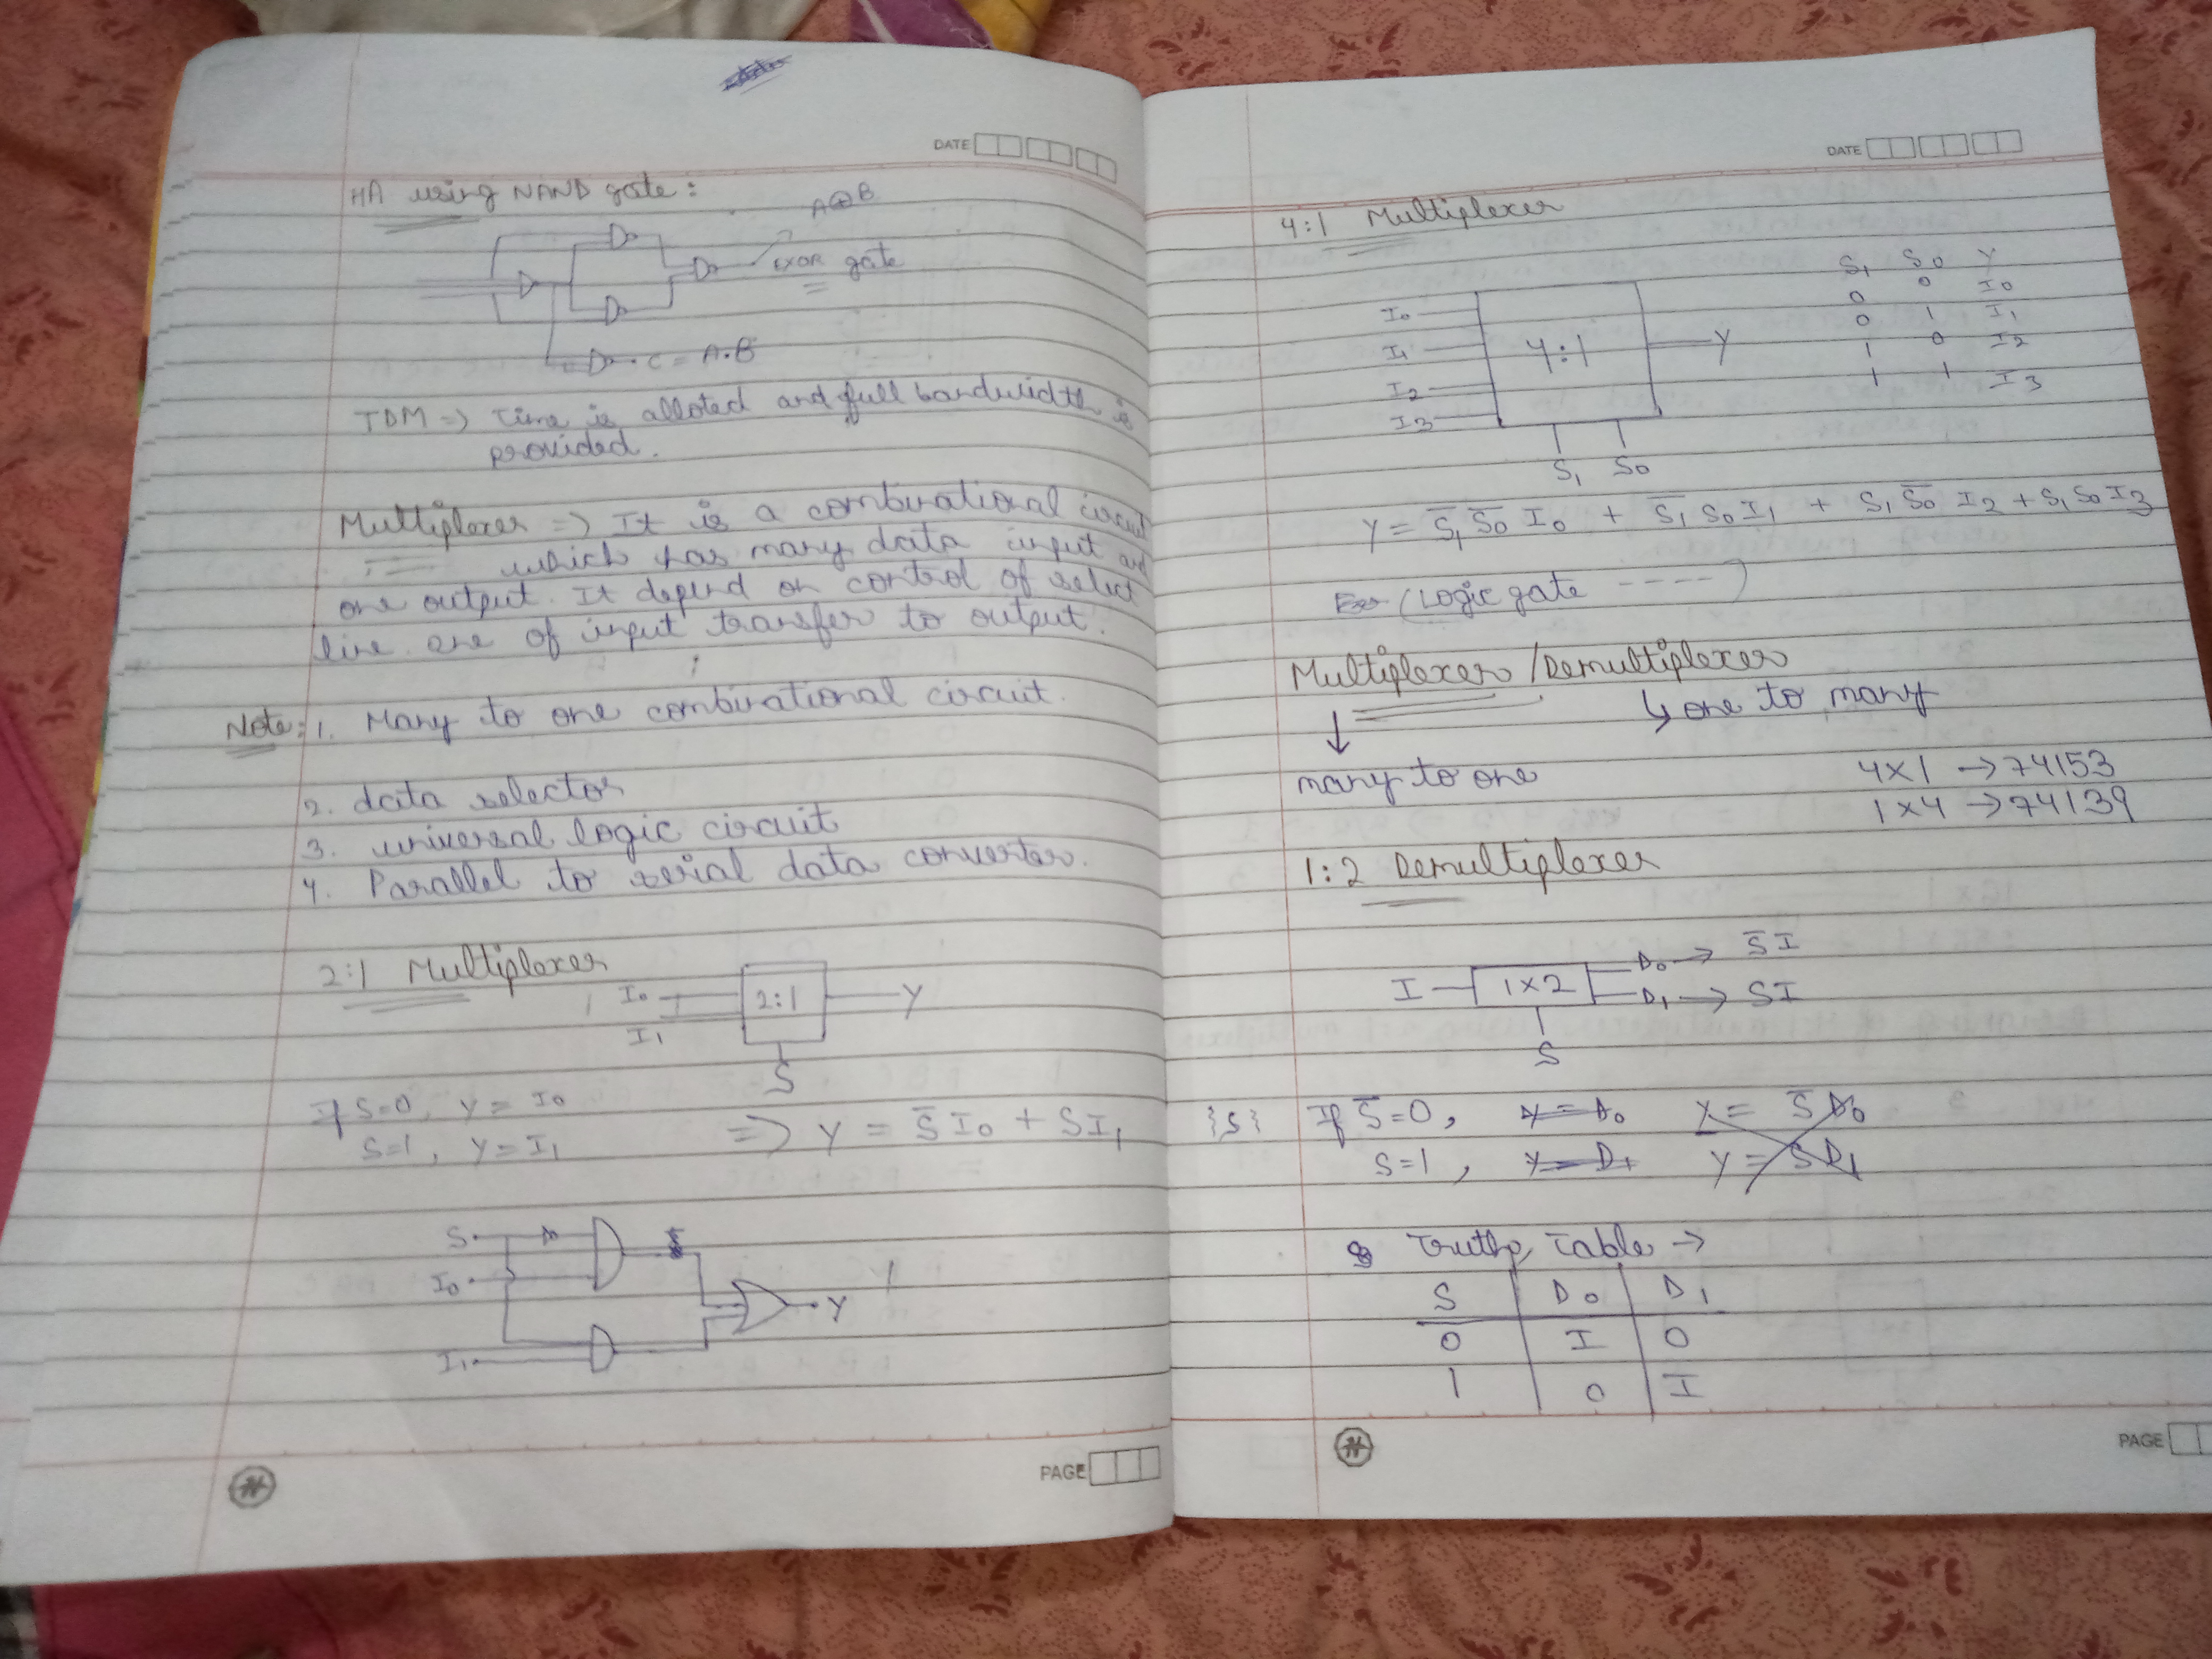 DATE
HA using NAND gate:
A⊕B
EXOR gate
C = A·B
TDM => Time is alloted and full bandwidth is
provided.
Multiplexer => It is a combinational circuit
which has many data input and
one output. It depend on control of select
line one of input transfer to output.
Note: 1. Many to one combinational circuit.
2. data selector
3. universal logic circuit
4. Parallel to serial data converter.
2:1 Multiplexer
I0 2:1 Y
I1
S
If S=0, Y = I0
S=1, Y = I1 => Y = S̅ I0 + S I1
S
I0
Y
I1
PAGE
DATE
4:1 Multiplexer
S1 S0 Y
0 0 I0
0 1 I1
1 0 I2
1 1 I3
I0
I1 4:1 Y
I2
I3
S1 S0
Y = S̅1 S̅0 I0 + S̅1 S0 I1 + S1 S̅0 I2 + S1 S0 I3
(Logic gate -----)
Multiplexer / Demultiplexer
↳ one to many
↓
many to one
4×1 → 74153
1×4 → 74139
1:2 Demultiplexer
I 1×2 D0 → S̅ I
D1 → S I
S
{S} If S̅=0, Y = D0 Y = S̅ D0
S=1, Y = D1 Y = S D1
Truth Table →
S D0 D1
0 I 0
1 0 I
PAGE